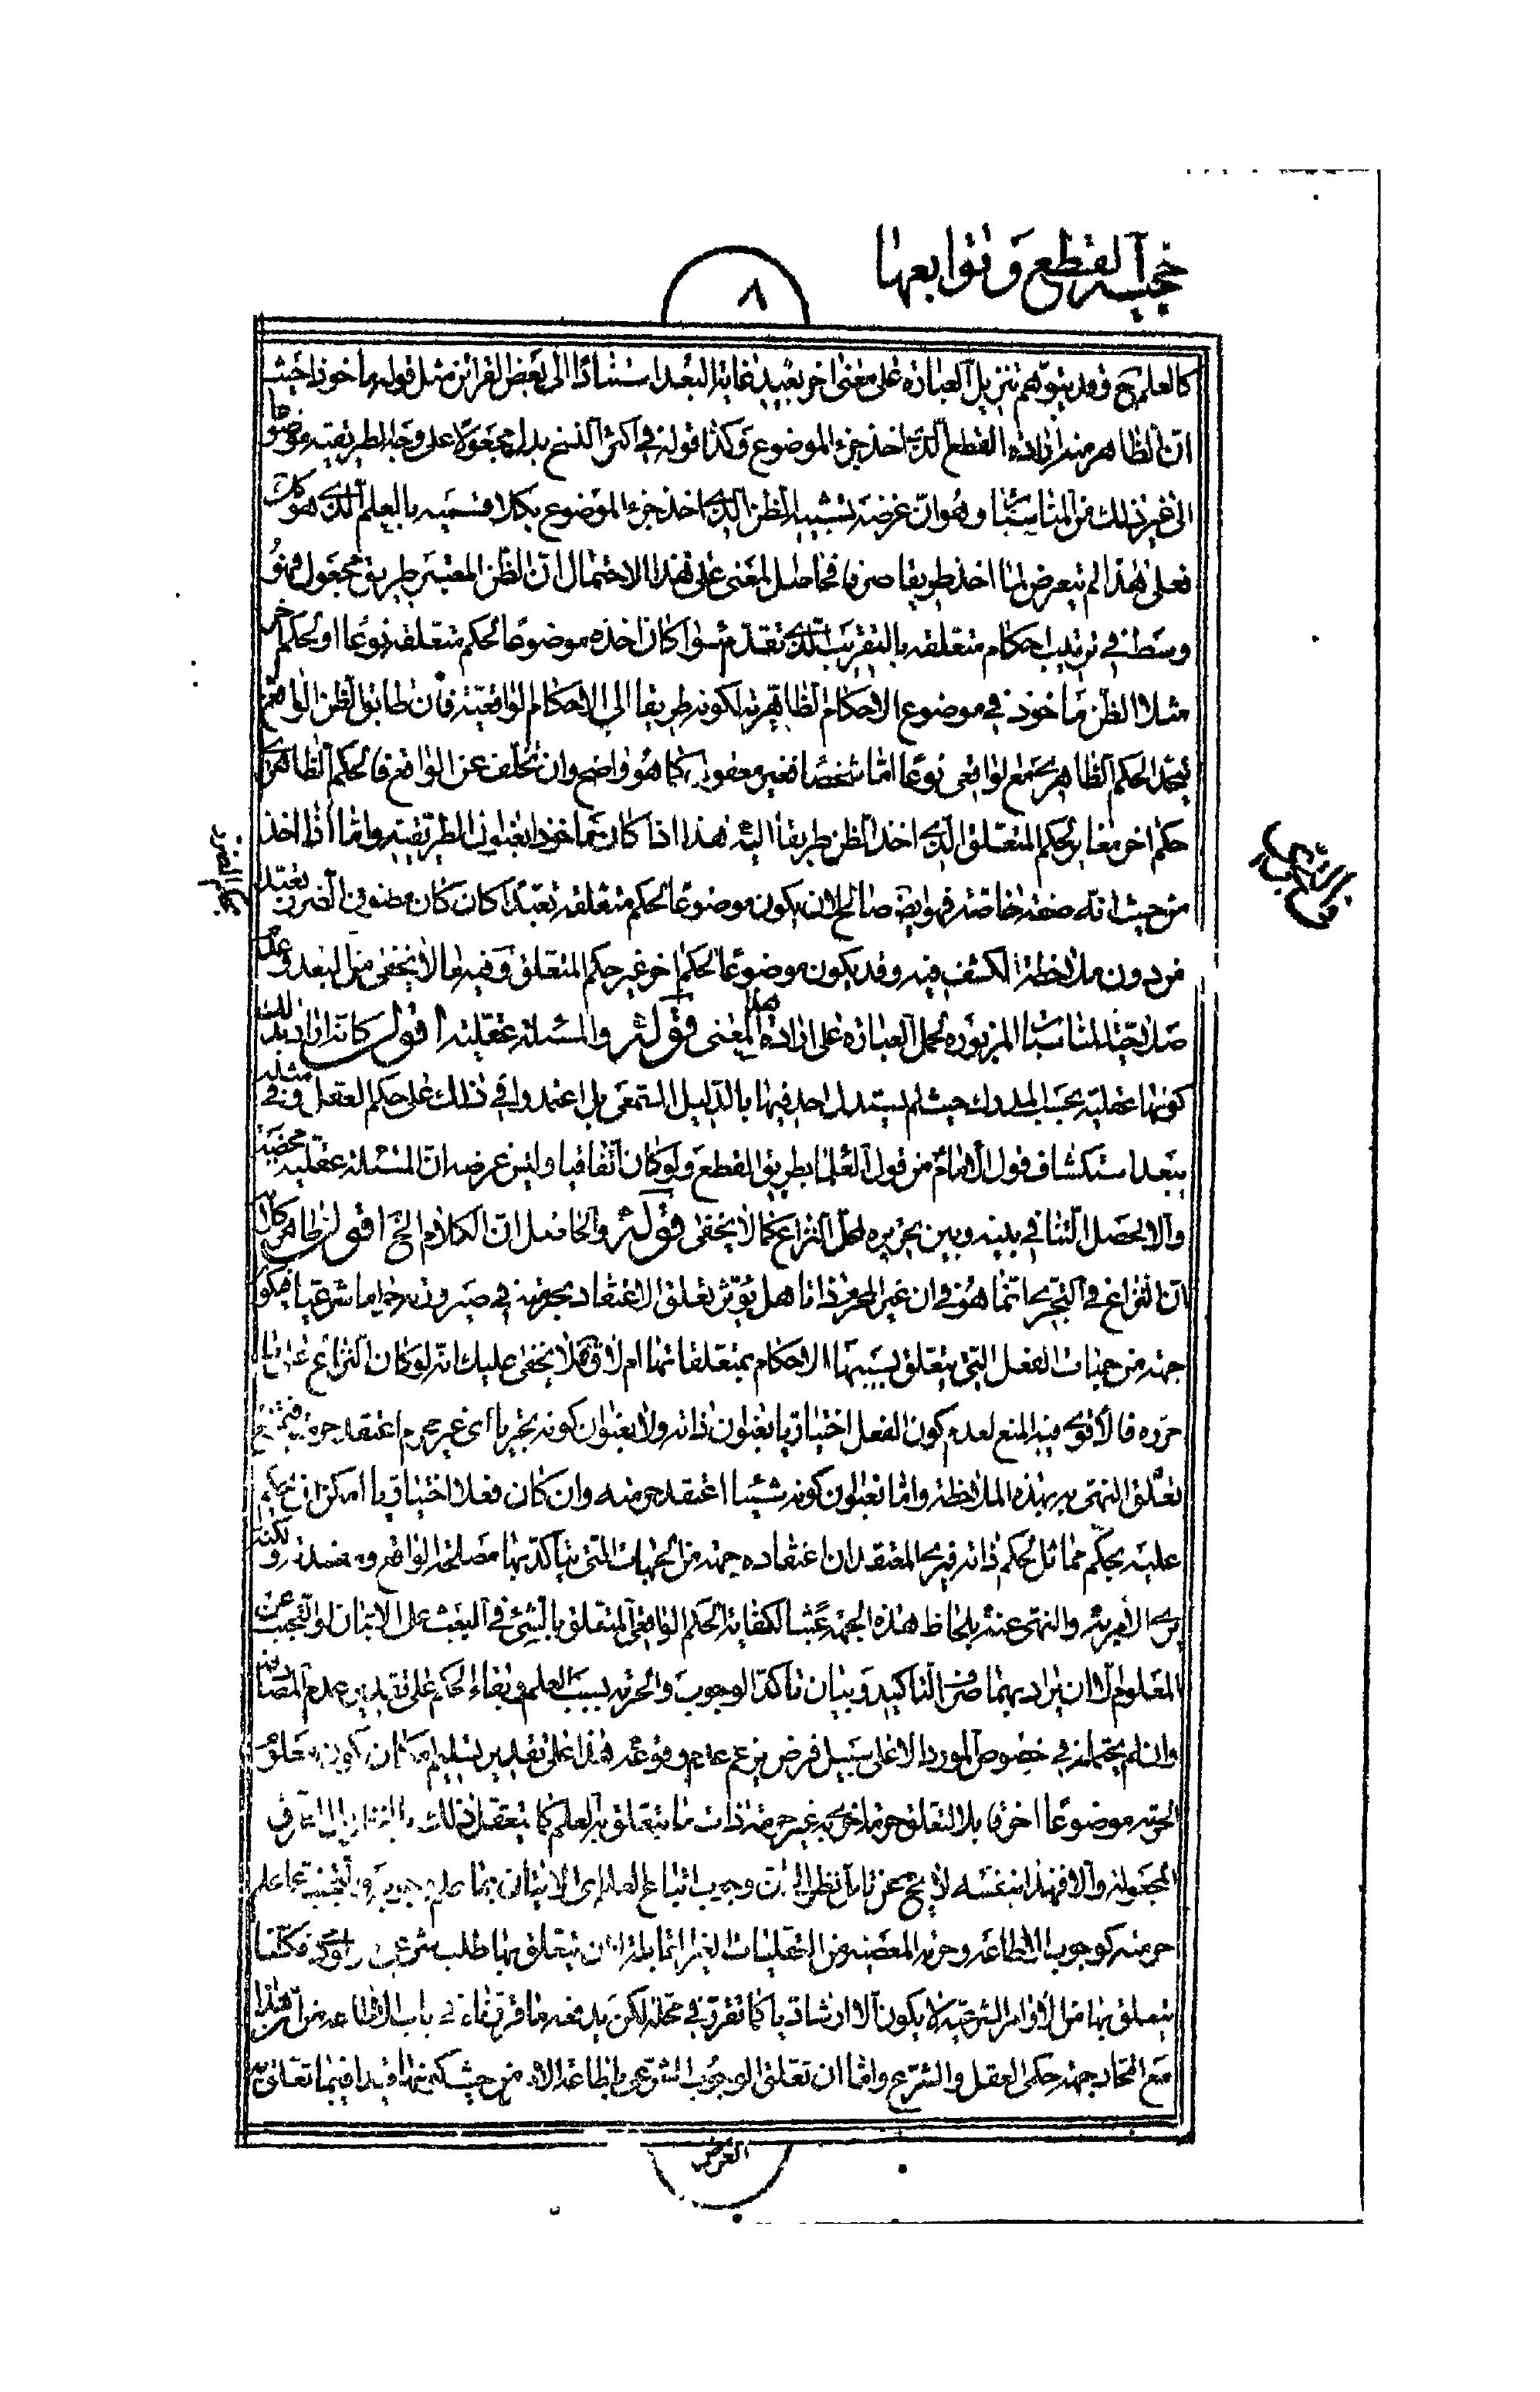 حجية القطع وتوابعها
٨
كالعلم ح وقد يتوهم تنزيل العبارة على معنى اخر بعيد غاية البعد استنادا الى بعض القرائن مثل قوله ماخوذا حيث
ان الظاهر منه ارادة القطع الذى اخذ جزء الموضوع وكذا قوله في اكثر النسخ بدل مجعولا على وجه الطريقية موضوعا
الى غير ذلك من المناسبات وهو ان غرضه تشبيه الظن الذى اخذ جزء الموضوع بكلا قسميه بالعلم الذى هو كك
فعلى هذا لم يتعرض لما اخذ طريقا صرفا فحاصل المعنى على هذا الاحتمال ان الظن المعتبر طريق مجعول فهو
وسط في ترتيب احكام متعلقه بالتقريب الذى تقدم سواء كان اخذه موضوعا لحكم متعلقه نوعا او لحكم اخر
مثلا الظن ماخوذ في موضوع الاحكام الظاهرية لكونه طريقا الى الاحكام الواقعية فان طابق الظن الواقع
يتحد الحكم الظاهرى مع الواقعى نوعا اما شخصا فغير معقول كما هو واضح وان تخلف عن الواقع فالحكم الظاهرى
حكم اخر مغاير لحكم المتعلق الذى اخذ الظن طريقا اليه هذا اذا كان ماخوذا بعنوان الطريقية واما اذا اخذ
من حيث انه صفة خاصة فهو ايض صالح لان يكون موضوعا لحكم متعلقه تعبدا كان كان مظنون الضرر تعبد
من دون ملاحظة الكشف فيه وقد يكون موضوعا لحكم اخر غير حكم المتعلق وفيه ما لا يخفى من البعد وعدم
صلاحية المناسبات المزبورة لحمل العبارة على ارادة هذا المعنى قوله والمسئلة عقلية اقول كانه اراد بذلك
كونها عقلية بحسب المدرك حيث لم يستدل احد فيها بالدليل السمعى بل اعتمدوا في ذلك على حكم العقل وفي مثله
يبعد استكشاف قول الامام من قول العلماء بطريق القطع ولو كان اتفاقيا وليس غرضه ان المسئلة عقلية محضة
والا يحصل التنافي بينه وبين تحريره لمحل النزاع كما لا يخفى قوله والحاصل ان الكلام الخ اقول ظاهر كلامه
ان النزاع في التجرى انما هو في ان غير المحرم ذاتا هل يؤثر تعلق الاعتقاد بحرمته في صيرورته حراما شرعيا فيكون
جهة من جهات الفعل التى يتعلق بسببها الاحكام بمتعلقاتها ام لا ولا يخفى عليك انه لو كان النزاع على ما
حرره فالاقوى فيه المنع لعدم كون الفعل اختياريا بعنوان ذاته ولا بعنوان كونه تجريا اى غير محرم اعتقد حرمته فيمتنع
تعلق النهى به بهذه الملاحظة واما بعنوان كونه شيئا اعتقد حرمته وان كان فعلا اختياريا امكن ان يحكم
عليه بحكم مماثل لحكم ذاته فيرى المعتقد ان اعتقاده جهة من الجهات التى يتاكد بها مصلحة الواقع ومفسدته ولكنه
يرى الامر به والنهى عنه بلحاظ هذه الجهة عبثا لكفاية الحكم الواقعى المتعلق بالشئ في البعث على الاتيان او التجنب عن
المعلوم الا ان يراد بهما صرف التاكيد وبيان تاكد الوجوب والحرمة بسبب العلم وبقاء الحكم على تقدير عدم المصادفة
وان لم يحتمله في خصوص المورد الا على سبيل فرض يزعم عدم وقوعه هذا على تقدير تسليم امكان كونه متعلق
الحرمة موضوعا اخر قابلا لتعلق حرمة اخرى به غير حرمة ذات ما يتعلق به العلم كما يتعقل ذلك بالنسبة الى الطرق
المجعولة والا فهذا بنفسه لا يخ عن تامل نظرا الى ان وجوب اتباع العلم اى الاتيان بما علم وجوبه والتجنب عما علم
حرمته كوجوب الاطاعة وحرمة المعصية من العقليات الغير القابلة لان يتعلق بها طلب شرعى مولوى فكلما
يتعلق بها من الاوامر الشرعية لا يكون الا ارشاديا كما تقرر في محله لكن يدفعه ما قررناه في باب الاطاعة من ان هذا
مع اتحاد جهة حكمى العقل والشرع واما ان تعلق الوجوب الشرعى باطاعة الاب من حيث كونها قيدا فيما تعلق به
الغرض